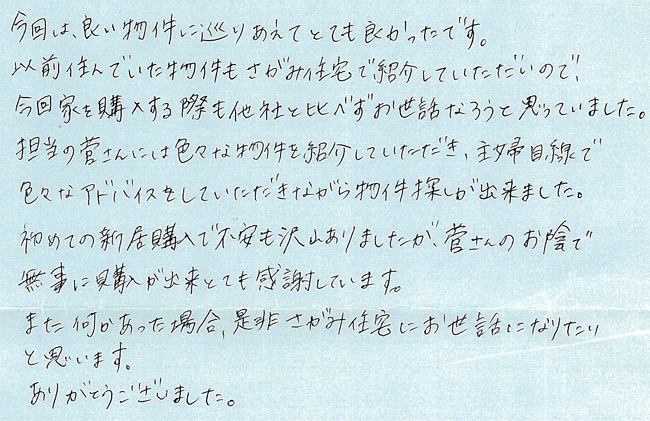 今回は、良い物件に巡りあえてとても良かったです。
以前住んでいた物件もさがみ住宅で紹介していただいので、
今回家を購入する際も他社と比べずお世話なろうと思っていました。
担当の菅さんには色々な物件を紹介していただき、主婦目線で
色々なアドバイスをしていただきながら物件探しが出来ました。
初めての新居購入で不安も沢山ありましたが、菅さんのお陰で
無事に購入が出来とても感謝しています。
また何かあった場合、是非さがみ住宅にお世話になりたい
と思います。
ありがとうございました。